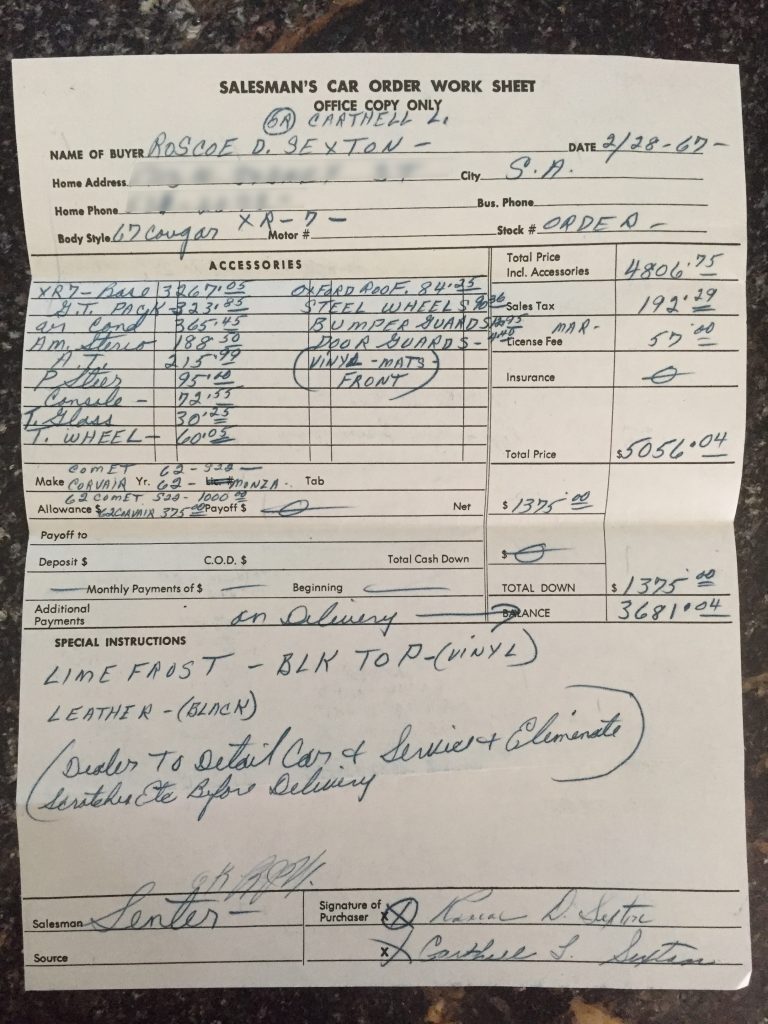 SALESMAN'S CAR ORDER WORK SHEET
OFFICE COPY ONLY
CARTHELL L.
NAME OF BUYER ROSCOE D. SEXTON - DATE 2/28-67-
Home Address City S.A.
Home Phone Bus. Phone
Body Style 67 Cougar XR-7- Motor # Stock # ORDER -
ACCESSORIES
Total Price Incl. Accessories 4806.75
XR7-Base 3267.05 OXFORD ROOF. 84.25
G.T. PACK 323.85 STEEL WHEELS Sales Tax 192.29
air Cond 365.45 BUMPER GUARDS
Am. Sterio 188.50 DOOR GUARDS - MAR- License Fee 57.00
A.T. 215.99 (VINYL-MATS
P Steer 95.00 FRONT) Insurance
Console - 72.55
T. Glass 30.25
T. WHEEL - 60.05 Total Price $5056.04
COMET 62-
Make CORVAIR Yr. 62- Lic. # MONZA - Tab
62 COMET 1000.00
Allowance $ 62 CORVAIR 375.00 Payoff $ 0 Net $ 1375.00
Payoff to
Deposit $ C.O.D. $ Total Cash Down $ 0
Monthly Payments of $ Beginning TOTAL DOWN $ 1375.00
Additional Payments on Delivery BALANCE 3681.04
SPECIAL INSTRUCTIONS
LIME FROST - BLK TOP-(VINYL)
LEATHER-(BLACK)
(Dealer To Detail Car & Service & Eliminate
Scratches Etc Before Delivery)
OK
Salesman Senter - Signature of Purchaser X Roscoe D. Sexton
Source X Carthell L. Sexton